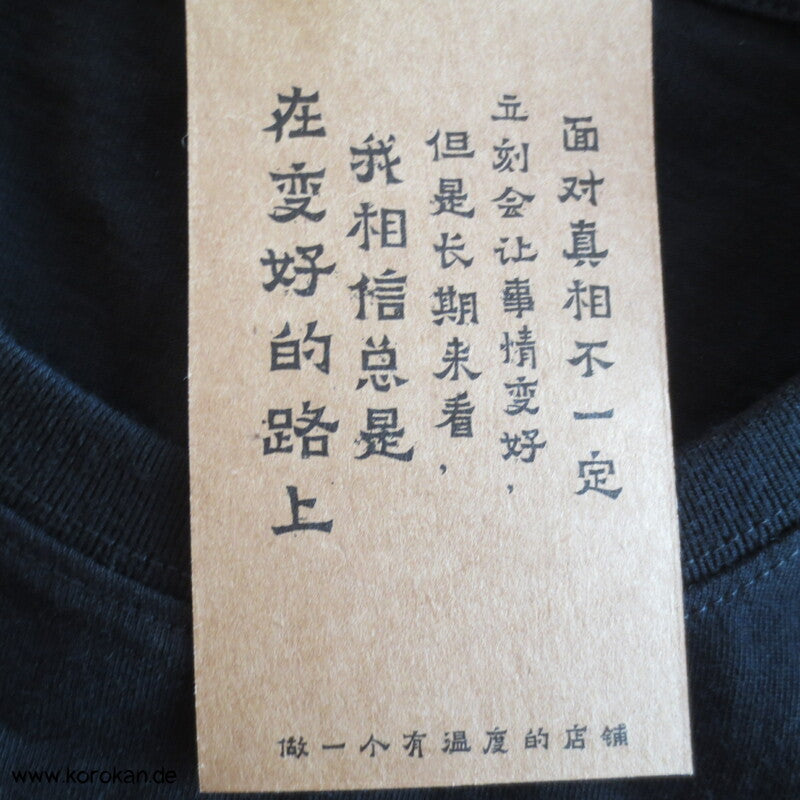 面对真相不一定
立刻会让事情变好，
但是长期来看，
我相信总是
在变好的路上
做一个有温度的店铺
www.korokan.de